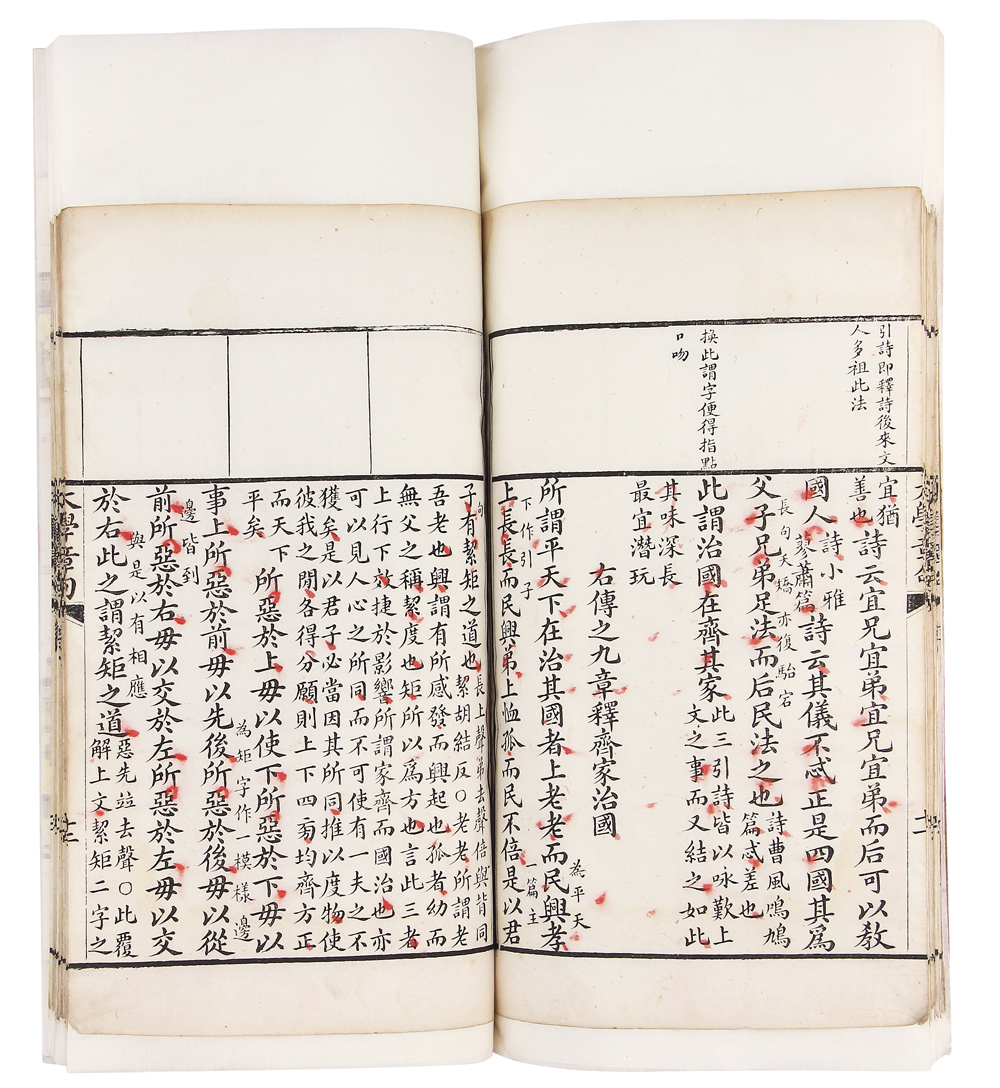 引詩即釋詩後來文
人多祖此法
換此謂字便得指點
口吻
宜猶
善也
詩云宜兄宜弟宜兄宜弟而后可以教
國人
詩小雅
蓼蕭篇
詩云其儀不忒正是四國其為
長句夭矯亦復駘宕
父子兄弟足法而后民法之也
詩曹風鳲鳩
篇忒差也
此謂治國在齊其家
此三引詩皆以咏歎上
文之事而又結之如此
其味深長
最宜潛玩
右傳之九章釋齊家治國
為平天
下作引子
所謂平天下在治其國者上老老而民興孝
一篇主
句
上長長而民興弟上恤孤而民不倍是以君
子有絜矩之道也
長上聲弟去聲倍與背同
絜胡結反〇老老所謂老
吾老也興謂有所感發而興起也孤者幼而
無父之稱絜度也矩所以為方也言此三者
上行下效捷於影響所謂家齊而國治也亦
可以見人心之所同而不可使有一夫之不
獲矣是以君子必當因其所同推以度物使
彼我之間各得分願則上下四旁均齊方正
而天下
平矣
所惡於上毋以使下所惡於下毋以
為矩字作一模樣邊
邊皆到
事上所惡於前毋以先後所惡於後毋以從
前所惡於右毋以交於左所惡於左毋以交
與是以有相應
於右此之謂絜矩之道
惡先竝去聲〇此覆
解上文絜矩二字之
大學章句